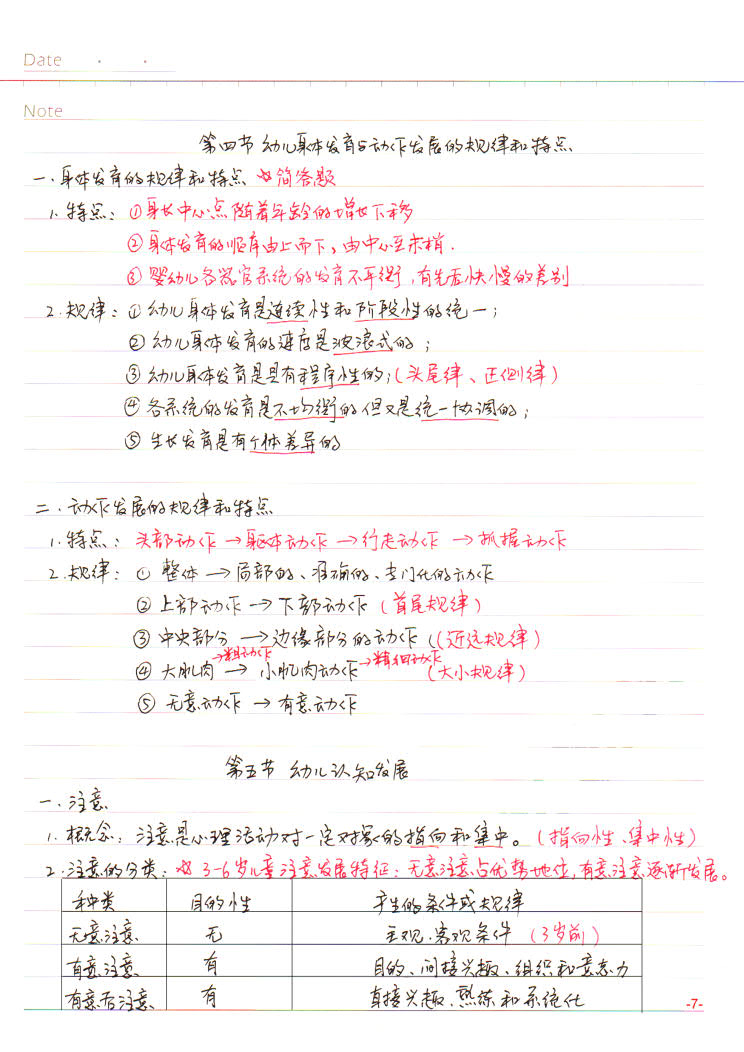 Date · ·
Note
第四节 幼儿身体发育与动作发展的规律和特点
一.身体发育的规律和特点 ☆简答题
1.特点：①身长中心点随着年龄的增长下移
②身体发育的顺序由上而下、由中心至末梢.
③婴幼儿各器官系统的发育不平衡,有先后快慢的差别
2.规律：①幼儿身体发育是连续性和阶段性的统一；
②幼儿身体发育的速度是波浪式的；
③幼儿身体发育是具有程序性的；(头尾律、正侧律)
④各系统的发育是不均衡的但又是统一协调的；
⑤生长发育是有个体差异的
二.动作发展的规律和特点
1.特点：头部动作→躯体动作→行走动作→抓握动作
2.规律：①整体→局部的、准确的、专门化的动作
②上部动作→下部动作(首尾规律)
③中央部分→边缘部分的动作((近远规律)
→粗动作 →精细动作
④大肌肉→小肌肉动作(大小规律)
⑤无意动作→有意动作
第五节 幼儿认知发展
一.注意
1.概念：注意是心理活动对一定对象的指向和集中。(指向性、集中性)
2.注意的分类：☆3-6岁儿童注意发展特征：无意注意占优势地位,有意注意逐渐发展。
种类 目的性 产生的条件或规律
无意注意 无 主观、客观条件 (3岁前)
有意注意 有 目的、间接兴趣、组织和意志力
有意后注意 有 直接兴趣、熟练和系统化
-7-